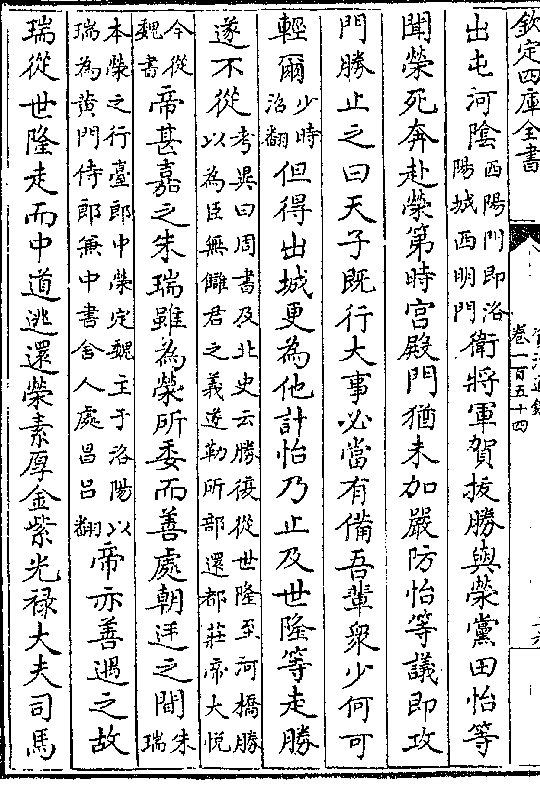 欽定四庫全書
卷一百五十四
出屯河陰西陽門即洛陽城西明門衛將軍賀拔勝與榮黨田怡等
聞榮死奔赴榮第時宮殿門猶未加嚴防怡等議即攻
門勝止之曰天子既行大事必當有備吾輩衆少何可
輕爾少時沼翻但得出城更為他計怡乃止及世隆等走勝
遂不從考異曰周書及北史云勝復從世隆至河橋勝以為臣無讎君之義遂勒所部還都莊帝大悅
今從魏書帝甚嘉之朱瑞雖為榮所委而善處朝廷之間朱瑞
本榮之行臺郎中榮定魏主于洛陽以瑞為黄門侍郎兼中書舍人處昌吕翻帝亦善遇之故
瑞從世隆走而中道逃還榮素厚金紫光禄大夫司馬